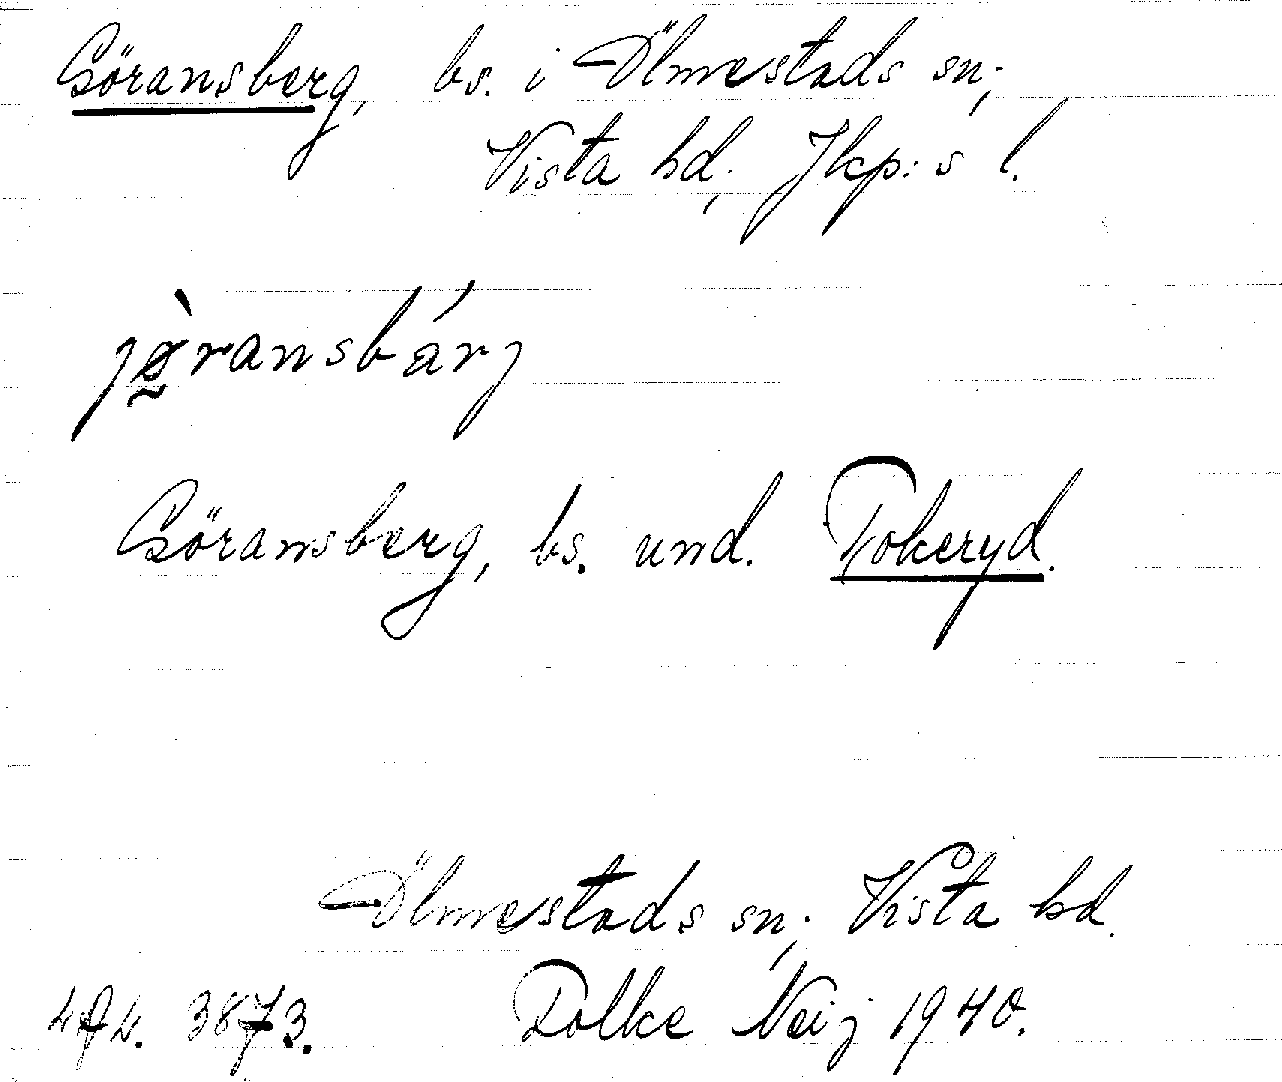 Göransberg, bs. i Ölmestads sn;
Vista hd, Jkp:s l.
jø̀ransbárj
Göransberg, bs. und. Tokeryd.
Ölmestads sn; Vista hd.
3873. Folke Neij 1940.